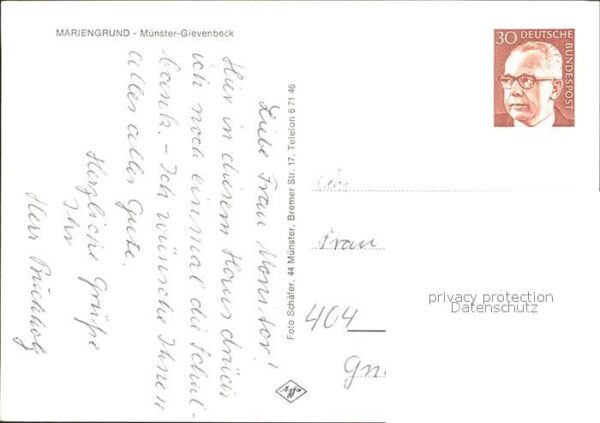 MARIENGRUND - Münster-Gievenbeck
30 DEUTSCHE
BUNDESPOST
Liebe Frau Monitor!
Hier in diesem Haus drücke
ich noch einmal die Schul-
bank. - Ich wünsche Ihnen
alles alles Gute.
Herzliche Grüße
Ihr
Herr Buchholz
Foto Schäfer, 44 Münster, Bremer Str. 17, Telefon 6 71 46
Agfa
An
Frau
404
Gn
privacy protection
Datenschutz